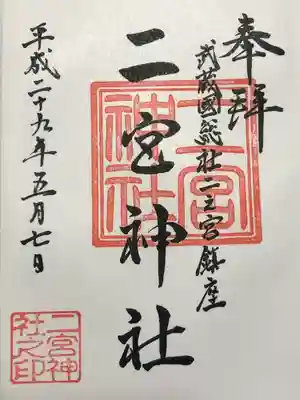 奉拝
武蔵國総社二之宮鎮座
二宮神社
平成二十九年五月七日
二宮神社
二宮神社之印